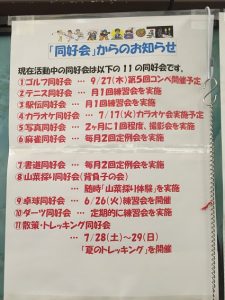 「同好会」からのお知らせ
現在活動中の同好会は以下の11の同好会です。
①ゴルフ同好会 … 9/27(木)第5回コンペ開催予定
②テニス同好会 … 月1回練習会を実施
③駅伝同好会 … 月1回練習会を実施
④カラオケ同好会 … 7/17(火)カラオケ会実施予定
⑤写真同好会 … 2ヶ月に1回程度、撮影会を実施
⑥麻雀同好会 … 毎月2回定例会を実施
⑦書道同好会 … 毎月2回定例会を実施
⑧山菜採り同好会(背負子の会)
… 随時「山菜採り体験」を実施
⑨卓球同好会 … 6/26(火)練習会を開催
⑩ダーツ同好会 … 定期的に練習会を実施
⑪散策・トレッキング同好会
… 7/28(土)～29(日)
「夏のトレッキング」を開催